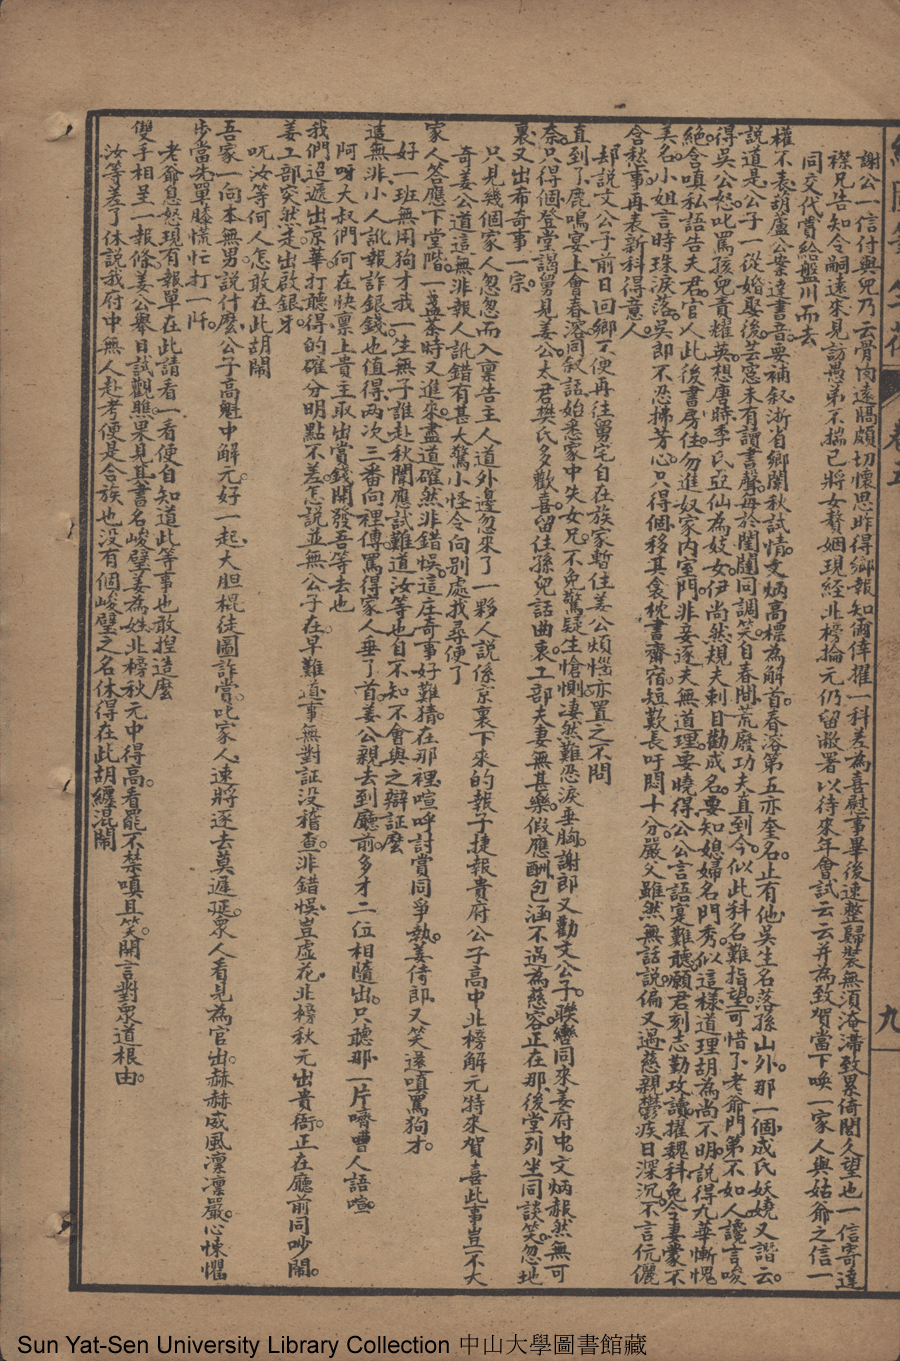 謝公一信付與兒乃云骨肉遠隔頗切懷思昨得鄉報知爾倖擢一科差為喜慰事畢後速整歸裝無須淹滯致累倚閭久望也一信寄達
襟兄告知令嗣遠來見訪愚弟不揣已將女贅姻現經北榜掄元仍留敝署以待來年會試云云并為致賀當下喚一家人與姑爺之信一
同交代賞給盤川而去
權不表葫蘆公案達書音要補叙浙省鄉闈秋試情文炳高標為解首春溶第五亦奎名止有他吳生名落孫山外那一個成氏妖嬈又譖云
說道是公子一從婚娶後芸窓未有讀書聲每於閨闥同調笑自春間荒廢功夫直到今似此科名難指望可惜了老爺門第不如人讒言唆
得吳公怒叱罵孩兒責耀英想唐時李氏亞仙為妓女伊尚然規夫刺目勸成名要知媳婦名門秀似這樣道理胡為尚不明說得九華慚愧
絕含嗔私語告夫君官人此後書房住勿進奴家內室門非妾逐夫無道理要曉得公公言語寔難聽願君刻志勤攻讀擢魏科免令妻蒙不
美名小姐言時珠淚落吳郎不忍拂芳心只得個移其衾枕書齋宿短歎長吁悶十分嚴父雖然無話說偏又過慈親鬱疾日深沉不言伉儷
含愁事再表新科得意人
却説文公子前日回鄉了便再往舅宅自在族家暫住姜公煩惱亦置之不問
直到了鹿鳴宴上會春溶同叙話始悉家中失女兄不免驚疑生愴惻凄然難忍淚垂胸謝郎又勸文公子聯轡同來姜府中文炳赧然無可
奈只得個登堂謁舅見姜公太君樊氏多歡喜留住孫兒話曲衷工部夫妻無甚樂假應酬包涵不過為慈容正在那後堂列坐同談笑忽地
裏又出希奇事一宗
只見幾個家人忽忽而入稟告主人道外邊忽來了一夥人說係京裏下來的報子捷報貴府公子高中北榜解元特來賀喜此事豈不大
奇姜公道這無非報人訛錯有甚大驚小怪令向別處找尋便了
家人答應下堂階一盞茶時又進來盡道確然非錯悞這庄奇事好難猜在那裡喧呼討賞同爭執姜倚郎又笑還嗔罵狗才
好一班無用狗才我一生無子誰赴秋闈應試難道汝等也自不知不會與之辯証麼
這無非小人訛報詐銀錢也值得兩次三番向裡傳罵得家人垂了首姜公親去到廳前多才二位相隨出只聽那一片嘈嘈人語喧
阿呀大叔們何在快稟上貴主取出賞錢開發吾等去也
我們迢遞出京華打聽得的確分明點不差怎說並無公子在早難道事無對証没稽查非錯悞豈虛花北榜秋元出貴衙正在廳前同吵鬧
姜工部突然走出啟銀牙
呔汝等何人怎敢在此胡鬧
吾家一向本無男說什麼公子高魁中解元好一起大胆棍徒圖詐賞叱家人速將逐去莫遲延衆人看見為官出赫赫威風凜凜嚴心悚懼
步當先單膝慌忙打一阡
老爺息怒現有報單在此請看一看便自知道此等事也敢揑造麼
雙手相呈一報條姜公舉目試觀瞧果見其書名峻璧姜為姓北榜秋元中得高看罷不禁嗔且笑開言對衆道根由
汝等差了休說我府中無人赴考便是合族也没有個峻璧之名休得在此胡纏混鬧
卷五
九
Sun Yat-Sen University Library Collection 中山大學圖書館藏